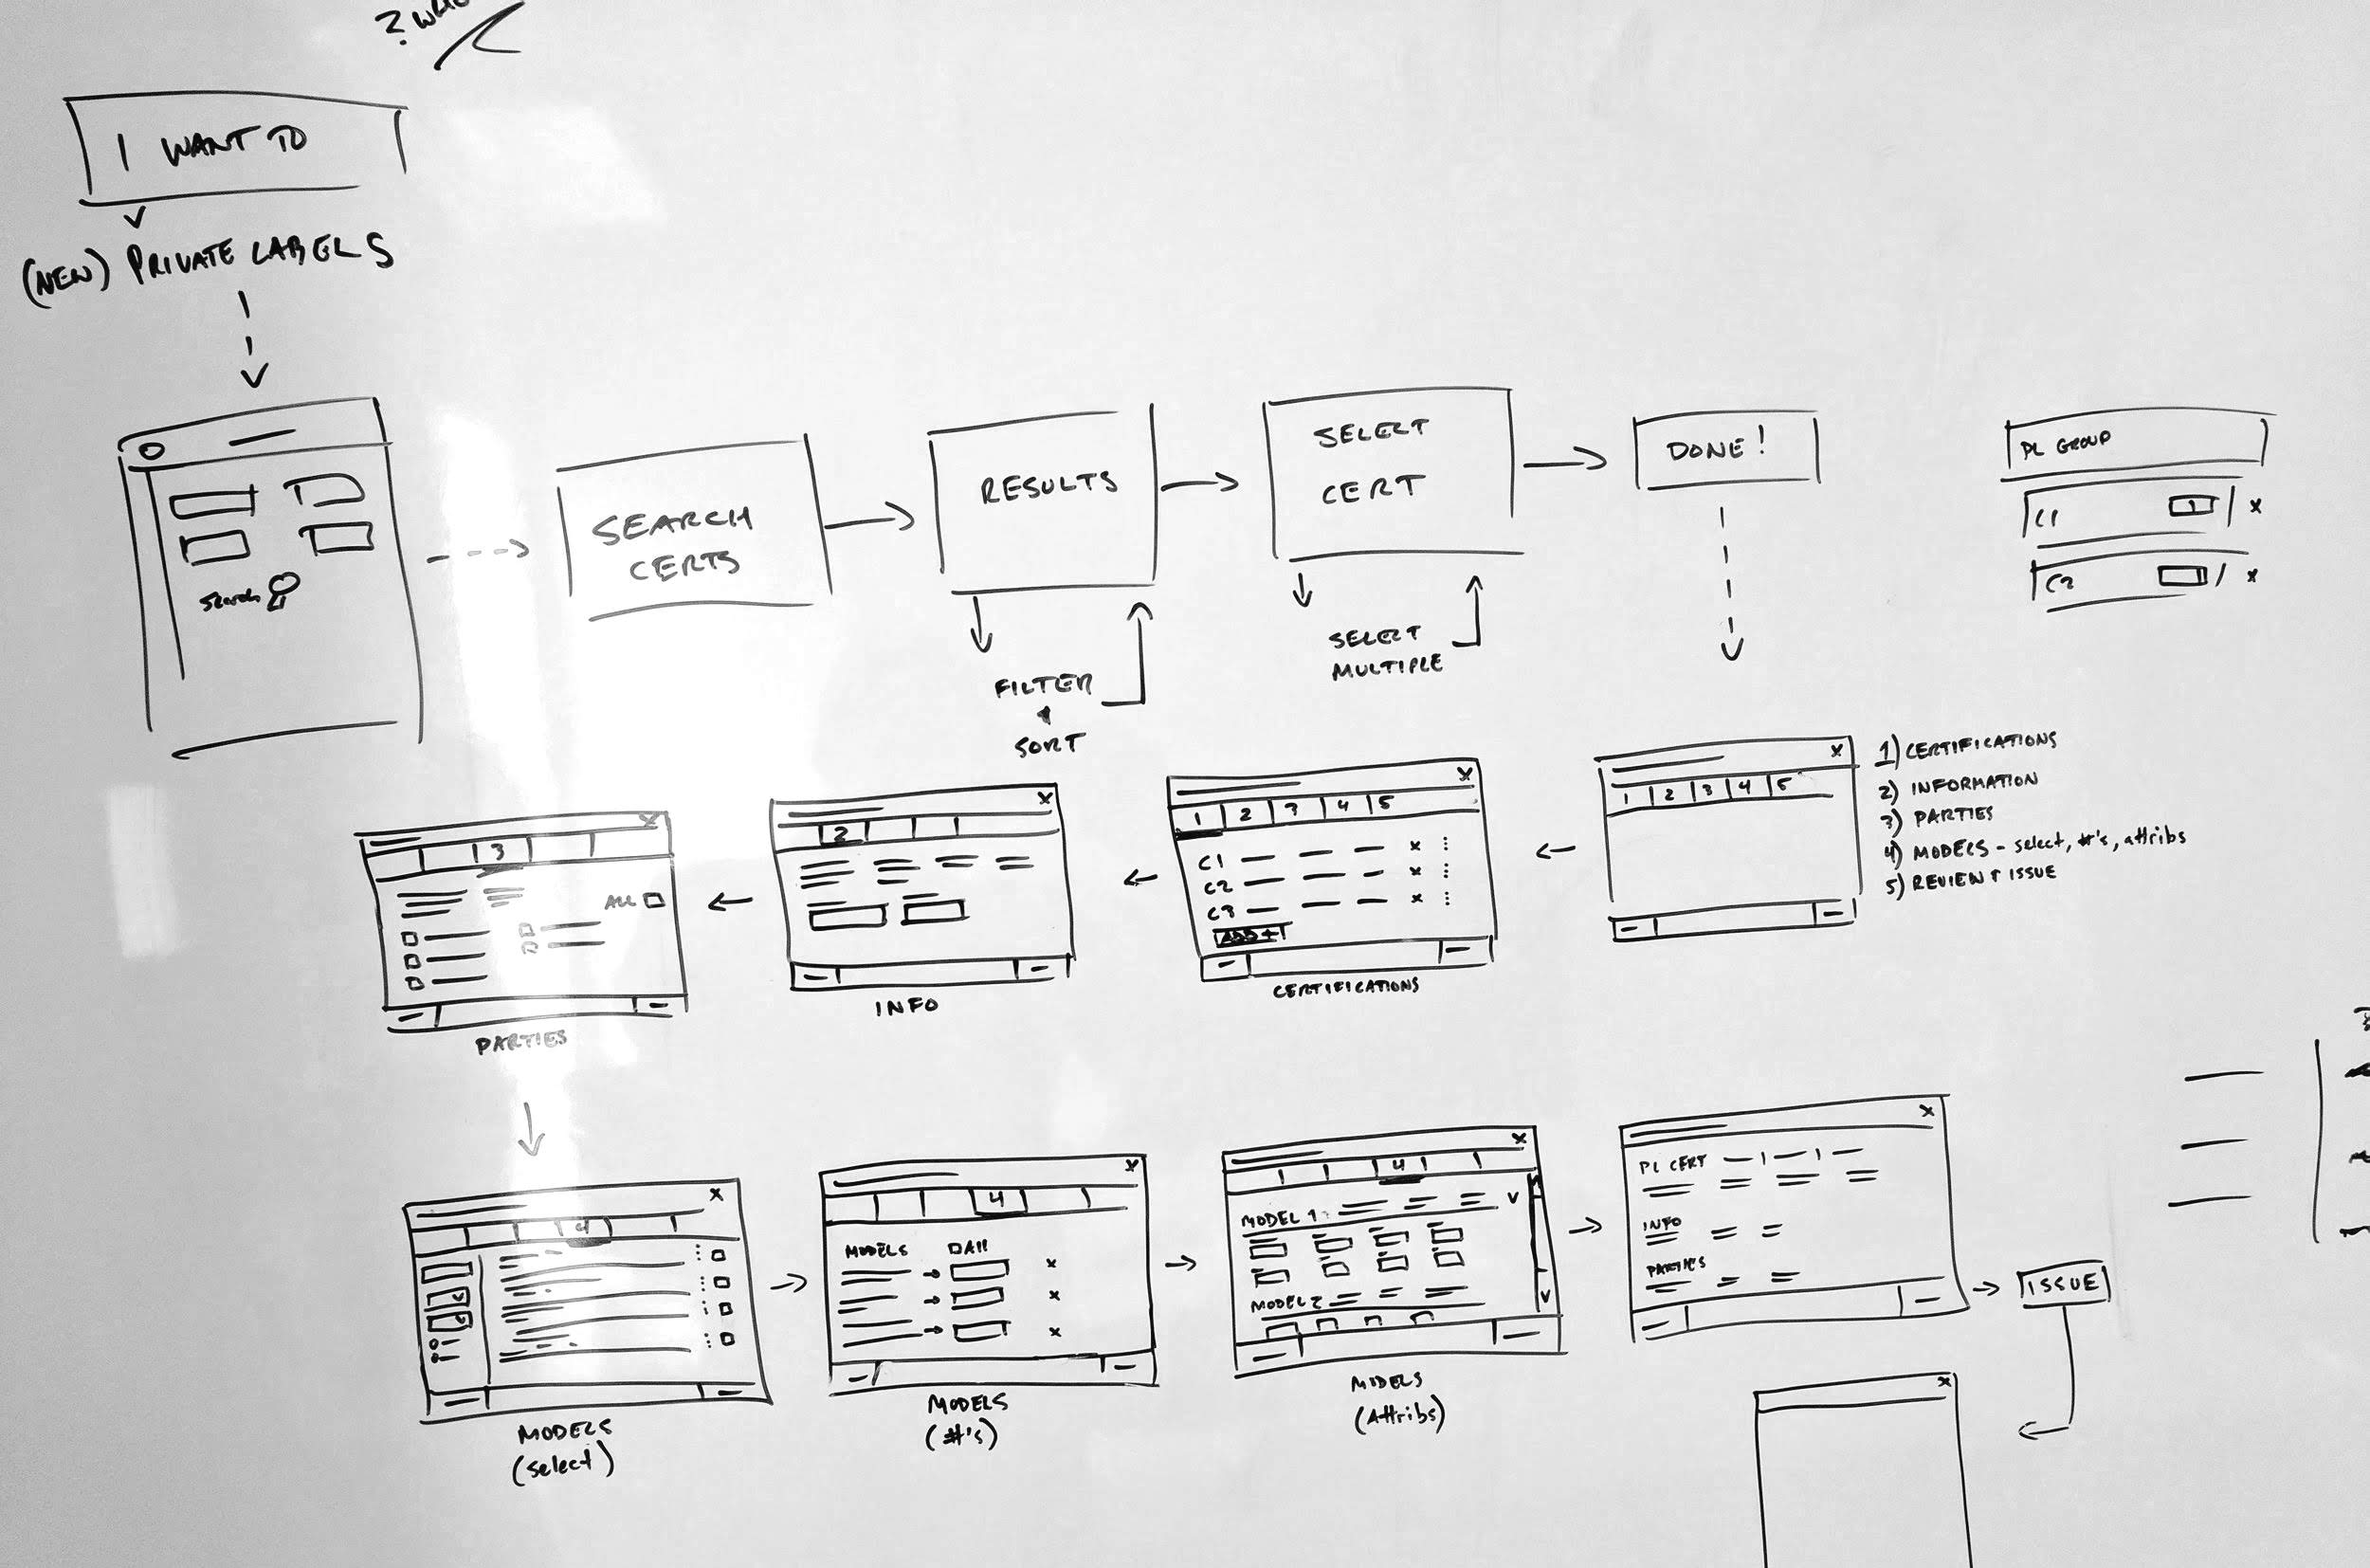 I WANT TO
(NEW) PRIVATE LABELS
Search
SEARCH
CERTS
RESULTS
FILTER
+
SORT
SELECT
CERT
SELECT
MULTIPLE
DONE!
PL GROUP
C1
C2
1 2 3 4 5
1) CERTIFICATIONS
2) INFORMATION
3) PARTIES
4) MODELS - select, #'s, attribs
5) REVIEW + ISSUE
1 2 3 4 5
C1
C2
C3
ADD +
CERTIFICATIONS
2
INFO
3
ALL
PARTIES
4
MODELS
(select)
4
MODELS All
MODELS
(#'s)
4
MODEL 1
MODEL 2
MODELS
(Attribs)
PL CERT
INFO
PARTIES
ISSUE